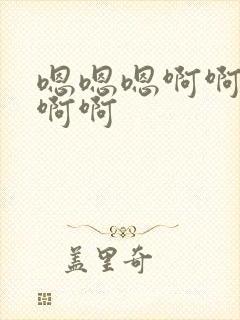 嗯嗯嗯啊啊
啊啊
盖里奇